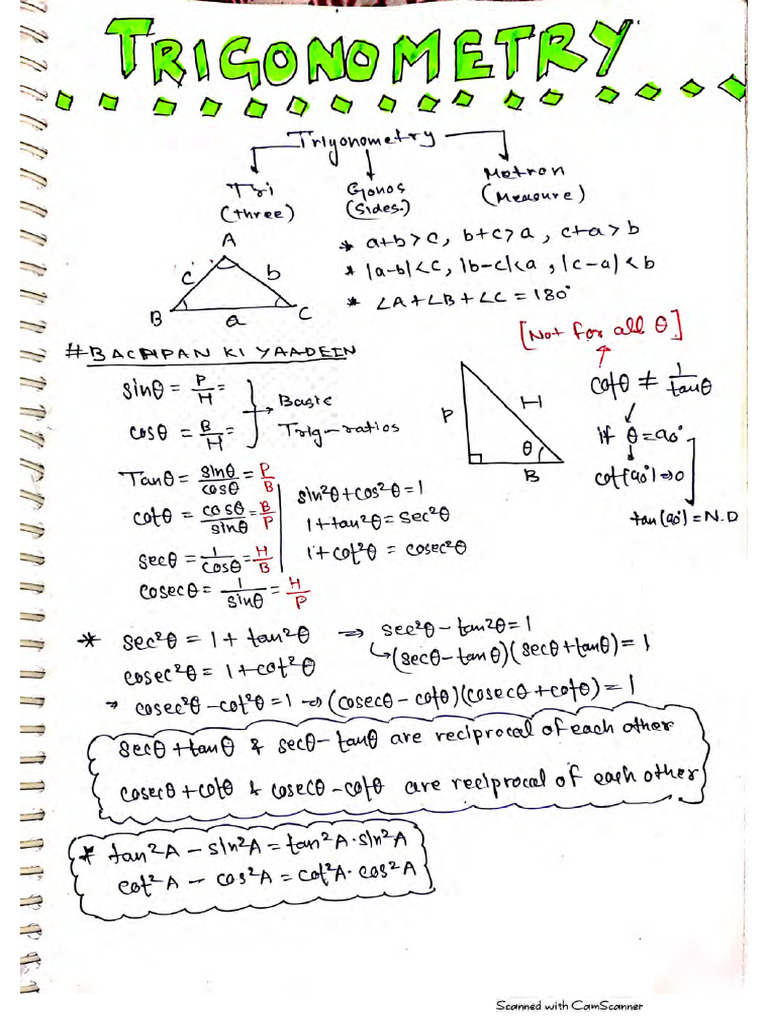 TRIGONOMETRY
Trigonometry
Tri Gonos Metron
(three) (Sides.) (Measure)
A
c b
B a C
* a+b>c, b+c>a, c+a>b
* |a-b|<c, |b-c|<a, |c-a|<b
* ∠A+∠B+∠C=180°
[Not for all θ]
#BACHPAN KI YAADEIN
sinθ = P/H =
cosθ = B/H =
Basic
Trig-ratios
P H
θ
B
cotθ ≠ 1/tanθ
if θ=90°
cot(90°)→0
tan(90°)=N.D
Tanθ = sinθ/cosθ = P/B
cotθ = cosθ/sinθ = B/P
secθ = 1/cosθ = H/B
cosecθ = 1/sinθ = H/P
sin²θ+cos²θ=1
1+tan²θ=sec²θ
1+cot²θ = cosec²θ
* sec²θ = 1+tan²θ ⇒ sec²θ-tan2θ=1
↳(secθ-tanθ)(secθ+tanθ)=1
cosec²θ = 1+cot²θ
→ cosec²θ-cot²θ=1 ⇒ (cosecθ-cotθ)(cosecθ+cotθ)=1
secθ+tanθ & secθ-tanθ are reciprocal of each other
cosecθ+cotθ & cosecθ-cotθ are reciprocal of each other
* tan²A - sin²A = tan²A·sin²A
cot²A - cos²A = cot²A·cos²A
Scanned with CamScanner